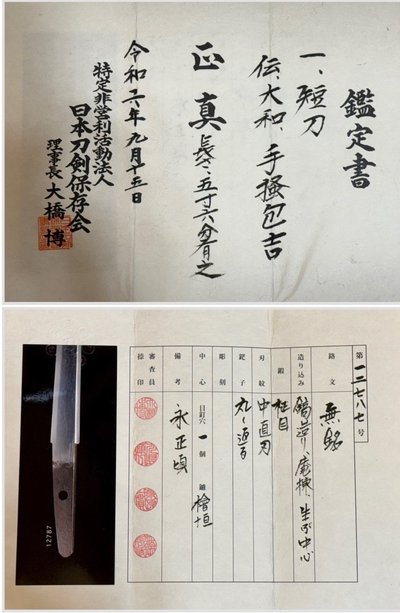 鑑定書
一、短刀
伝、大和、手掻包吉
正真 長サ、五寸六分有之
令和六年九月十五日
特定非営利活動法人
日本刀剣保存会
理事長 大橋 博
第一二七八七号
銘文 無銘
造り込み 鎬造り、庵棟、生ぶ中心
鍛 柾目
刃紋 中直刃
鋩子 丸く返る
彫刻
中心 目釘穴 一 個 鑢 檜垣
備考 永正頃
審査員捺印
12787